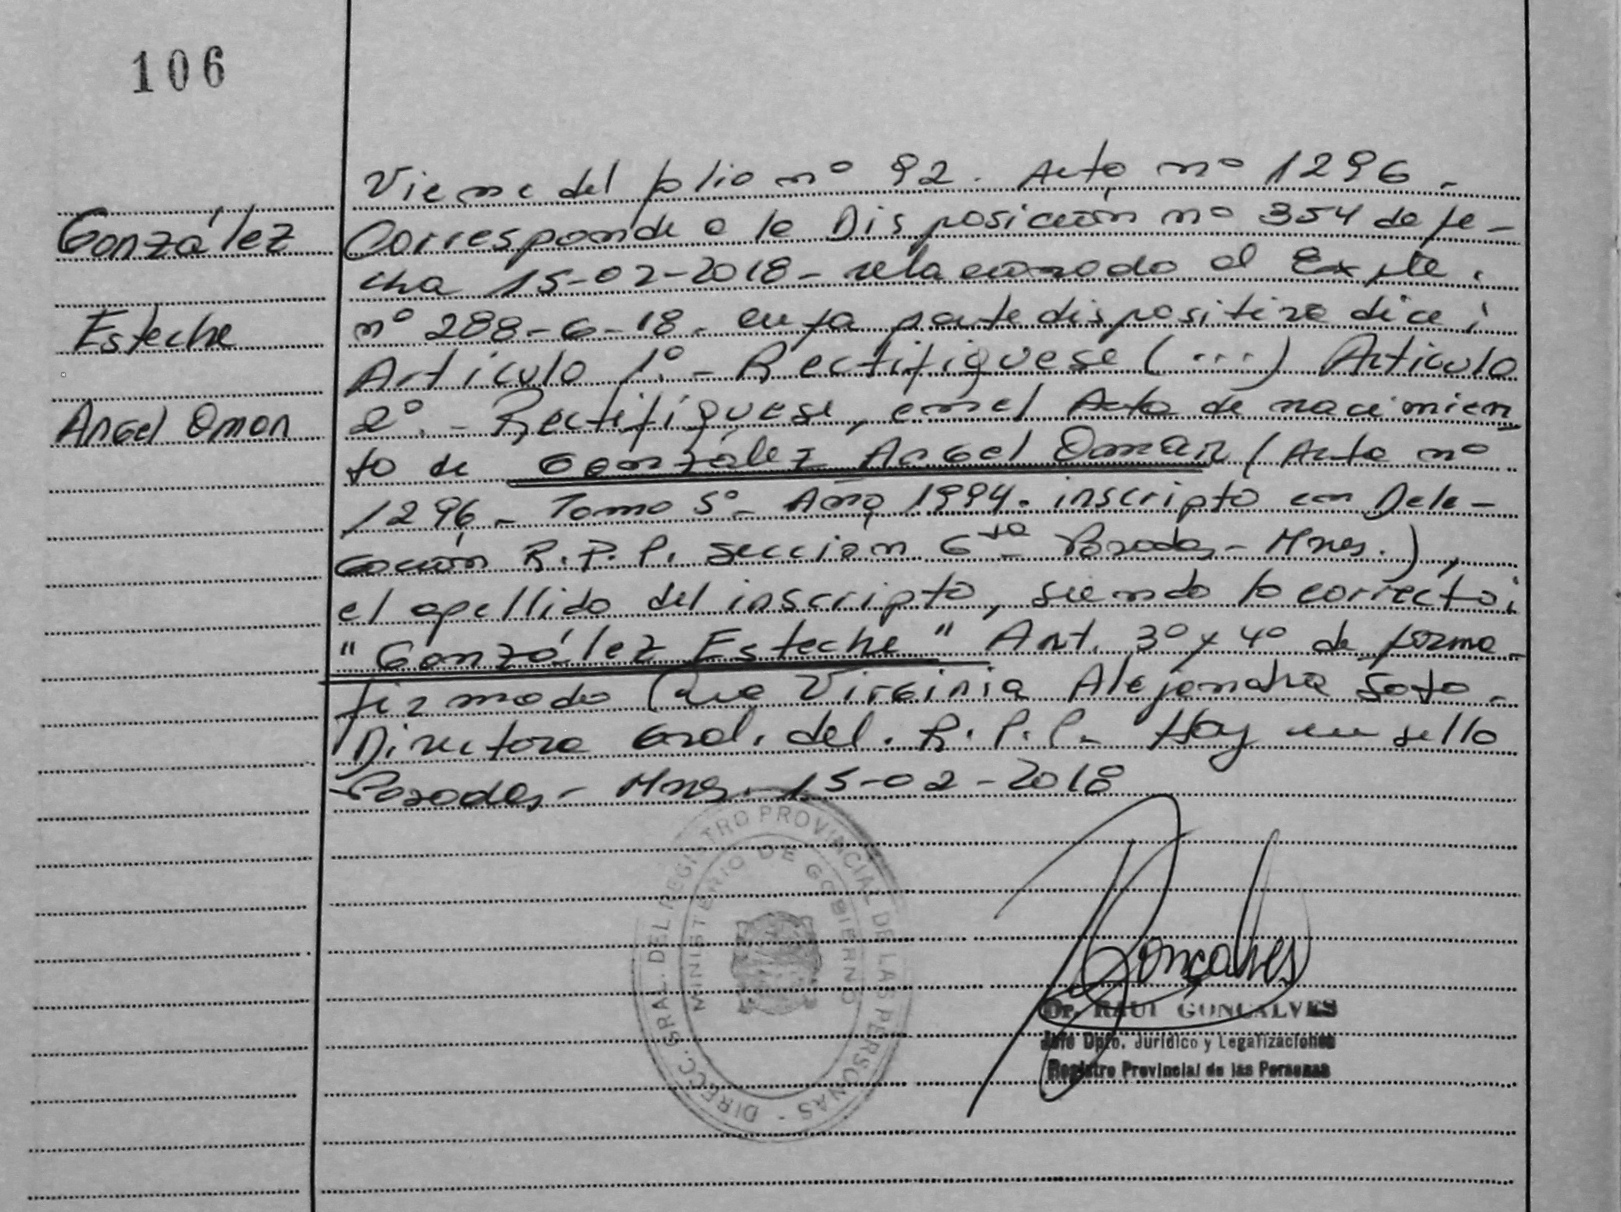 106
González
Esteche
Angel Omar
Viene del folio nº 92. Acta nº 1296.
Corresponde a la Disposición nº 354 de fe-
cha 15-02-2018 - relacionado al Expte.
nº 288-G-18. cuya parte dispositiva dice:
Articulo 1º.- Rectifiquese (...) Articulo
2º.- Rectifíquese, en el Acta de nacimien
to de González Angel Omar (Acta nº
1296 - Tomo 5º - Año 1994. inscripto en Dele-
gación R.P.P. sección 6ta Posadas - Mnes.),
el apellido del inscripto, siendo lo correcto:
"González Esteche" Art. 3º y 4º de forma -
firmado Virginia Alejandra Soto.
Directora Gral. del. R.P.P. Hay un sello
Posadas - Mnes. 15-02-2018
DIRECC. GRAL. DEL REGISTRO PROVINCIAL DE LAS PERSONAS -
MINISTERIO DE GOBIERNO
Gonçalves
Dr. RAUL GONCALVES
Jefe Dpto. Jurídico y Legalizaciones
Registro Provincial de las Personas